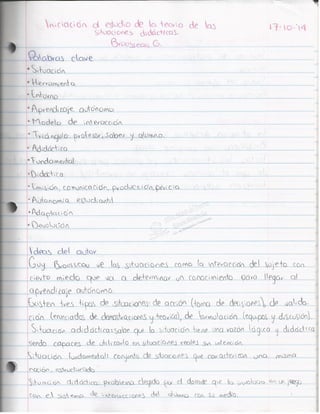 Iniciación al estudio de la teoría de las
situaciones didácticas.
17-10-14
Brousseau G.
Palabras clave
• Situación
• Herramienta
• Entorno
• Aprendizaje autónomo
• Modelo de interacción
• Triángulo profesor, saber y alumno.
• Adidáctica
• Fundamental
• Didáctica
• Emisión, comunicación, producción pericia
• Autonomía estudiantil
• Adaptación
• Devolución
Ideas del autor
Guy Brousseau ve las situaciones como la interacción del sujeto con
cierto medio que va a determinar un conocimiento para llegar al
aprendizaje autónomo.
Existen tres tipos de situaciones de acción (toma de decisiones), de valida-
ción (enunciados de demostraciones y teorías), de formulación (equipos y discusión).
Situación adidáctica: saber que la situación tiene una razón lógica y didáctica
siendo capaces de utilizarla en situaciones reales sin intención.
Situación fundamental: conjunto de situaciones que caracterizan una misma
noción, estructurada.
Situación didáctica: problema elegido por el docente que lo involucra en un juego
con el sistema de interacciones del alumno con su medio.